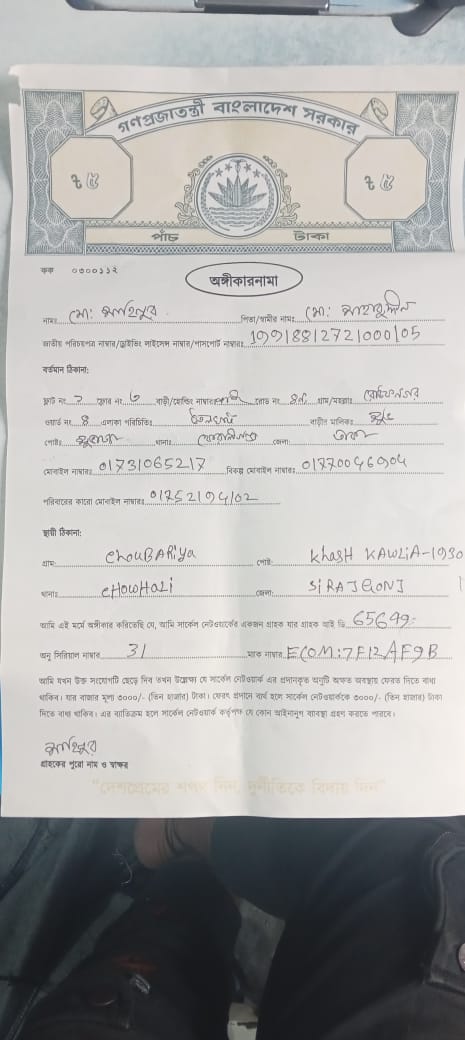 গণপ্রজাতন্ত্রী বাংলাদেশ সরকার
৳ ৫ ৳ ৫
পাঁচ টাকা
কক ০৩০০১১২
অঙ্গীকারনামা
নামঃ মোঃ পিতা/স্বামীর নামঃ মোঃ
জাতীয় পরিচয়পত্র নাম্বার/ড্রাইভিং লাইসেন্স নাম্বার/পাসপোর্ট নাম্বারঃ 19918812721000105
বর্তমান ঠিকানা:
ফ্ল্যাট নং ফ্লোর নং ৬ বাড়ী/হোল্ডিং নাম্বারঃ রোড নং গ্রাম/মহল্লাঃ
ওয়ার্ড নং ৪ এলাকা পরিচিতিঃ বাড়ীর মালিকঃ
পোষ্টঃ থানাঃ জেলাঃ ঢাকা
মোবাইল নাম্বারঃ 01731065217 বিকল্প মোবাইল নাম্বারঃ 01770046904
পরিবারের কারো মোবাইল নাম্বারঃ 01752194102
স্থায়ী ঠিকানা:
গ্রামঃ CHOUBARiya পোষ্টঃ KhasH KAWLiA-1930
থানাঃ CHOWHALi জেলাঃ SiRAJGONJ
আমি এই মর্মে অঙ্গীকার করিতেছি যে, আমি সার্কেল নেটওয়ার্কের একজন গ্রাহক যার গ্রাহক আই ডি 65649
অনু সিরিয়াল নাম্বার 31 ম্যাক নাম্বার ECOM:7F12AF9B
আমি যখন উক্ত সংযোগটি ছেড়ে দিব তখন উল্লেখ্য যে সার্কেল নেটওয়ার্ক এর প্রদানকৃত অনুটি অক্ষত অবস্থায় ফেরত দিতে বাধ্য
থাকিব। যার বাজার মূল্য ৩০০০/- (তিন হাজার) টাকা। ফেরৎ প্রদানে ব্যর্থ হলে সার্কেল নেটওয়ার্ককে ৩০০০/- (তিন হাজার) টাকা
দিতে বাধ্য থাকিব। এর ব্যতিক্রম হলে সার্কেল নেটওয়ার্ক কর্তৃপক্ষ যে কোন আইনানুগ ব্যবস্থা গ্রহণ করতে পারবে।
গ্রাহকের পুরো নাম ও স্বাক্ষর
"দেশপ্রেমের শপথ নিন, দুর্নীতিকে বিদায় দিন"